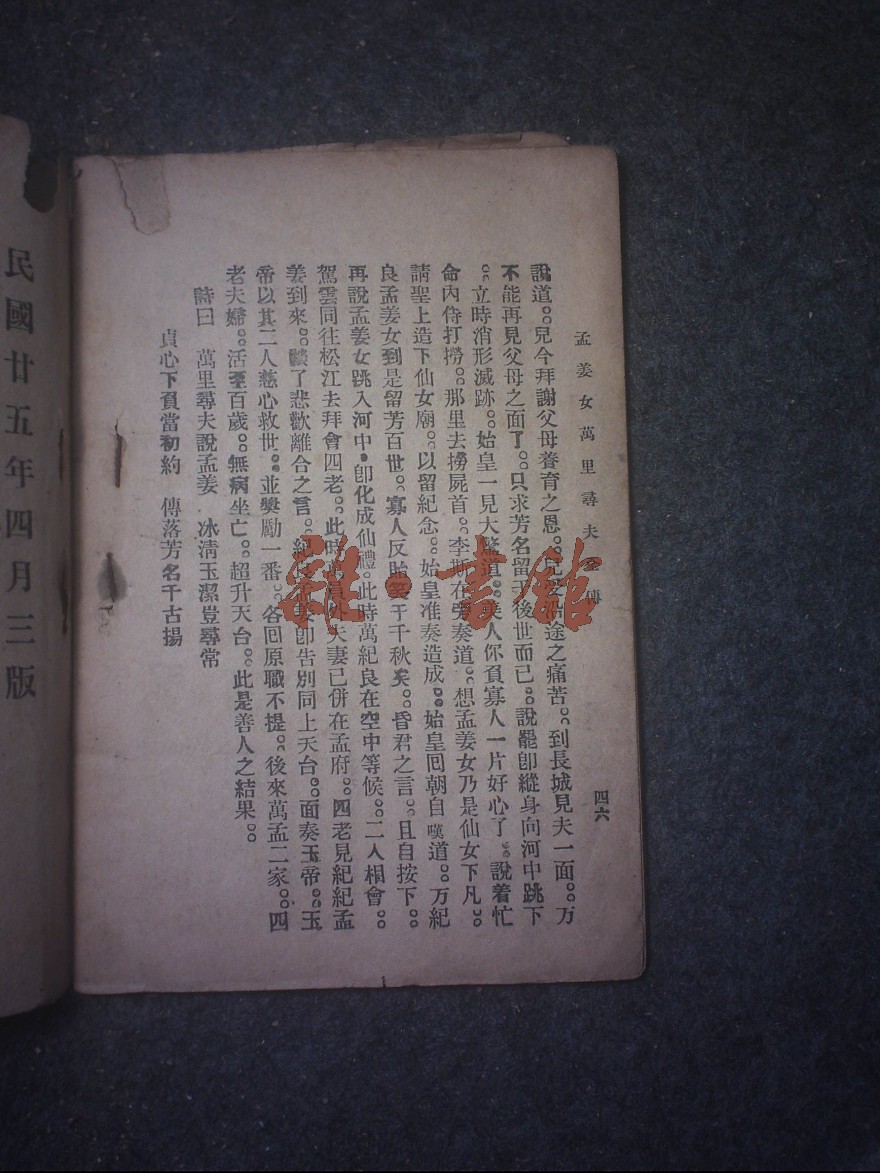 孟姜女萬里尋夫全傳
四六
說道。。兒今拜謝父母養育之恩。。兒受沿途之痛苦。。到長城見夫一面。。万
不能再見父母之面了。。只求芳名留于後世而已。。說罷卽縱身向河中跳下
。。立時消形滅跡。。始皇一見大驚道。。美人你負寡人一片好心了。。說着忙
命內侍打撈。。那里去撈屍首。。李斯在旁奏道。。想孟姜女乃是仙女下凡。。
請聖上造下仙女廟。。以留紀念。。始皇准奏造成。。始皇回朝自嘆道。。万紀
良孟姜女到是留芳百世。。寡人反貽笑于千秋矣。。昏君之言。。且自按下。。
再說孟姜女跳入河中。卽化成仙禮。此時萬紀良在空中等候。。二人相會。。
駕雲同往松江去拜會四老。。此時萬員外夫妻已併在孟府。。四老見紀紀孟
姜到來。。談了悲歡離合之言。。紀良孟姜卽告別同上天台。。面奏玉帝。。玉
帝以其二人慈心救世。。並獎勵一番。。各回原職不提。。後來萬孟二家。。四
老夫婦。。活至百歲。。無病坐亡。。超升天台。。此是善人之結果。。
詩曰 萬里尋夫說孟姜 冰清玉潔豈尋常
貞心下負當初約 傳落芳名千古揚
民國廿五年四月三版
雜·書館